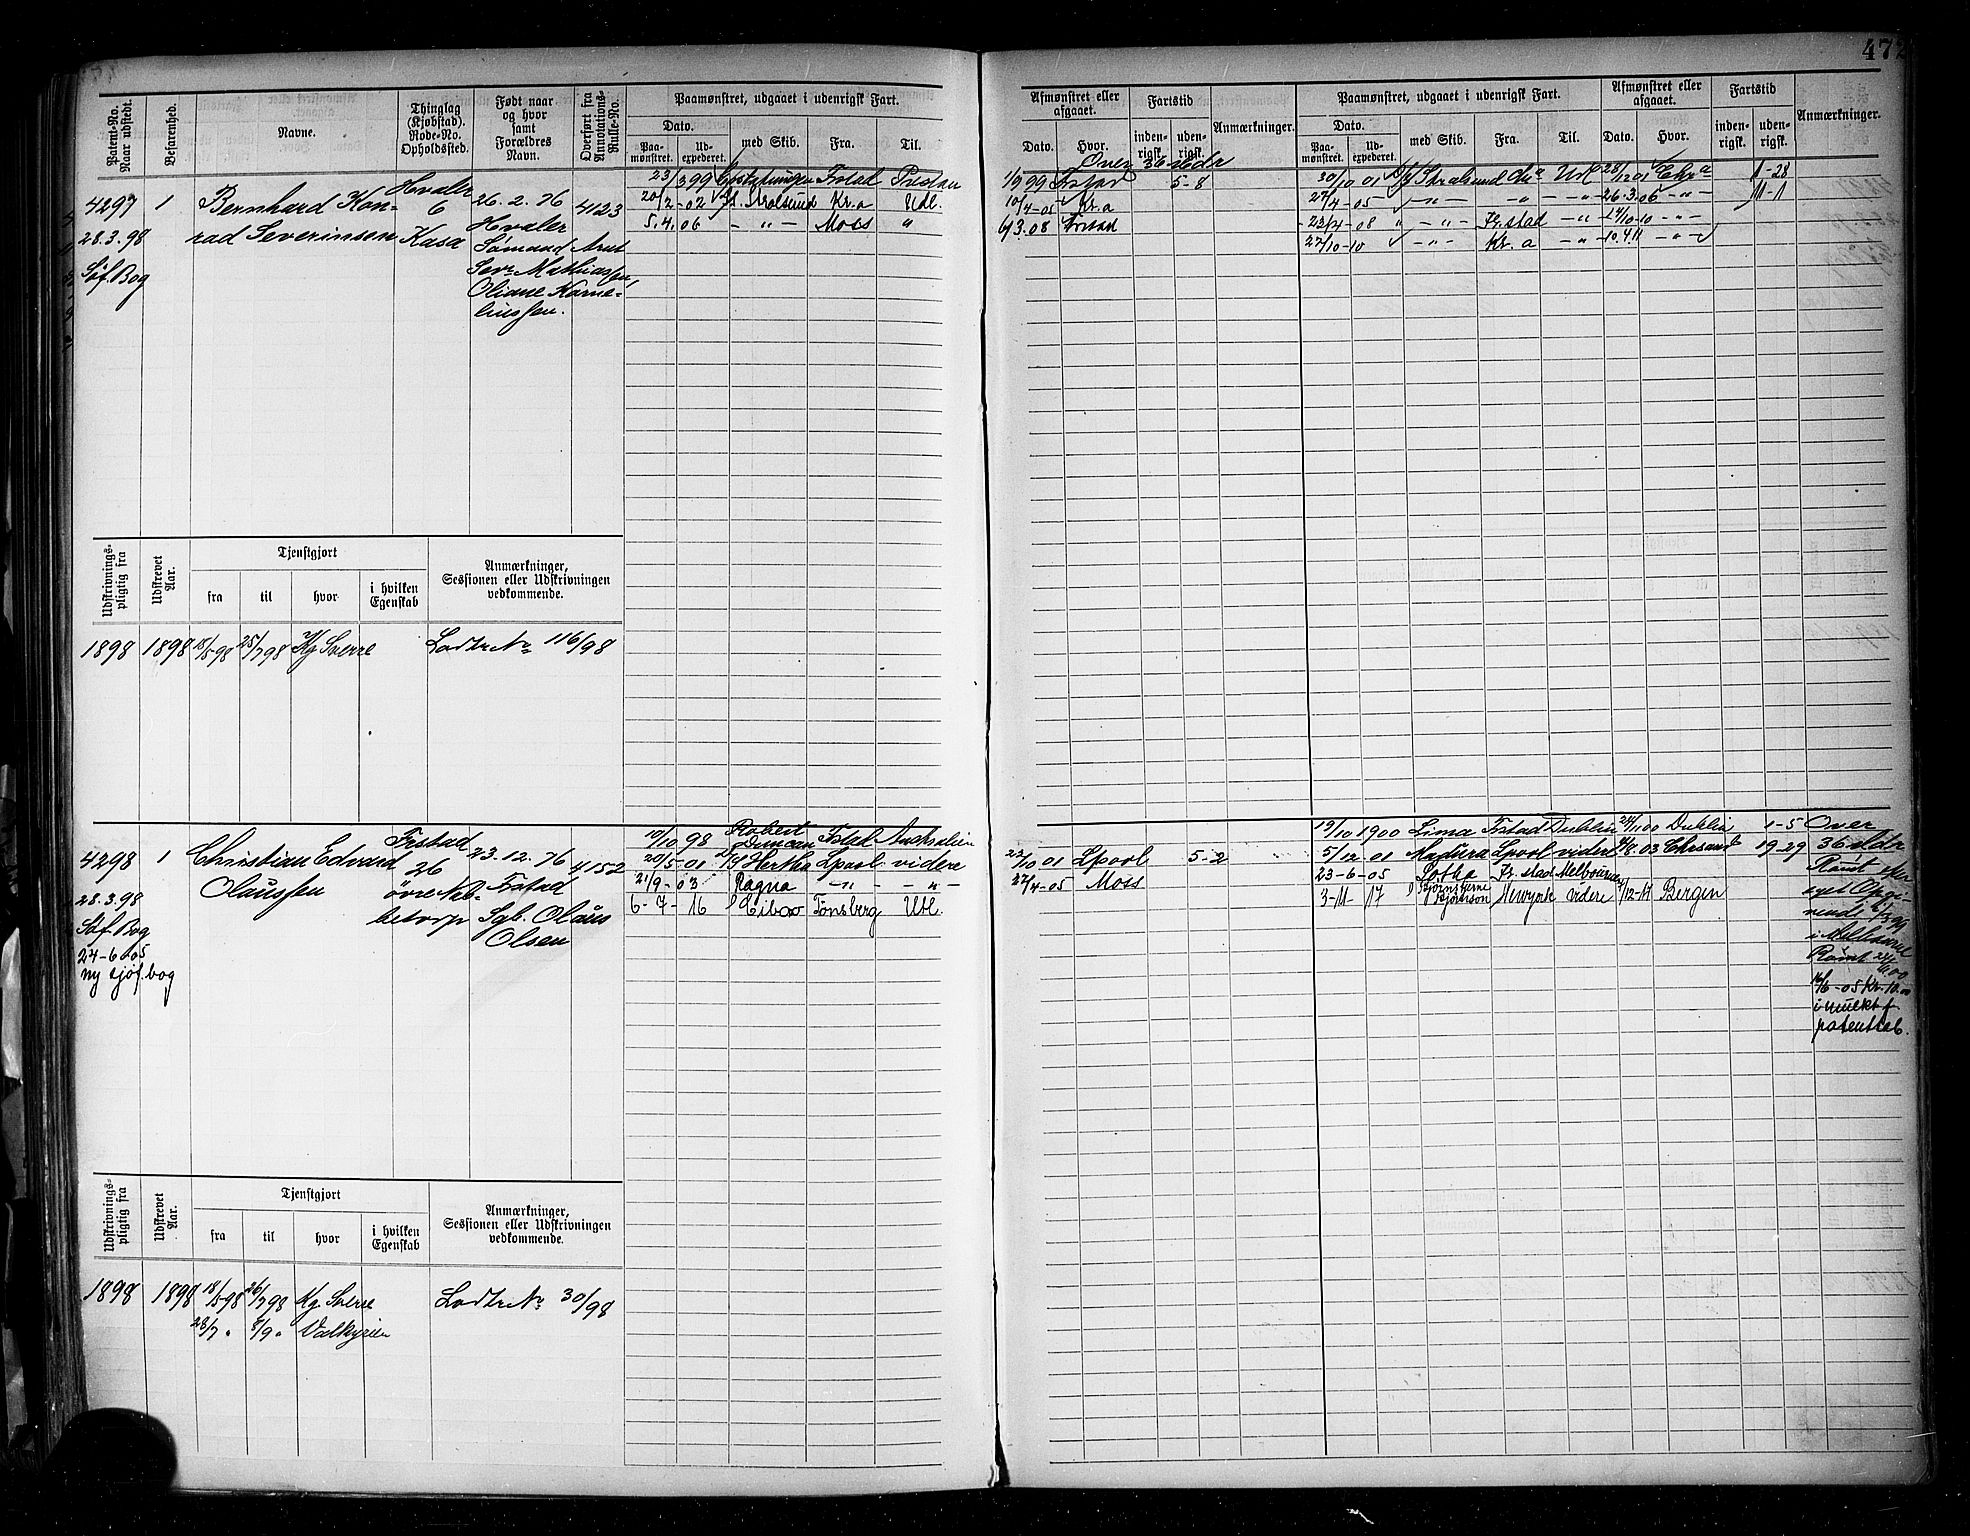 472
Patent-No. Naar udstedt.
Befarenhed.
Navne.
Thinglag (Kjøbstad). Rode-No. Opholdssted.
Født naar og hvor samt Forældres Navn.
Overført fra Annotations-Rulle-No.
Paamønstret, udgaaet i udenrigsk Fart.
Dato.
Paamønstret.
Udexpederet.
med Skib.
Fra.
Til.
Afmønstret eller afgaaet.
Dato.
Hvor.
Fartstid
indenrigsk.
udenrigsk.
Anmærkninger.
Paamønstret, udgaaet i udenrigsk Fart.
Dato.
Paamønstret.
Udexpederet.
med Skib.
Fra.
Til.
Afmønstret eller afgaaet.
Dato.
Hvor.
Fartstid
indenrigsk.
udenrigsk.
Anmærkninger.
4297 1 Bernhard Kon-
rad Severinsen
28.3.98
Søf. Bog
Hvaler
6
Kasa
26.2.76
Hvaler
Sømand Arnt
Sevr Mathiassen,
Oliane Korne-
liussen.
4123
23/3 99 Fstad
20/2-02 Kr.a Udl.
5.4.06 - " - Moss "
Over 36 Mdr
1/9 99 Fstad 5-8
10/4-05 Kr.a
6/3.08 Frstad
30/10 01 Stralsund Chra Udl 28/12 01 Chra 1-28
27/4-05 - " - - " - - " - 26.3.06 - " - 11-1
23/4-08 " - " - Fr.stad - " - 14/10-10 - " -
27/10-10 - " - Kr.a - " - 10.4.11 - " -
Udskrivningspligtig fra
Udskrevet Aar.
Tjenstgjort
fra
til
hvor
i hvilken Egenskab
Anmærkninger, Sessionen eller Udskrivningen vedkommende.
1898 1898 18/5-98 25/7 98 Kg Sverre Lodtr No 116/98
4298 1 Christian Edvard
Olaussen
28.3.98
Søf. Bog
24-6 05
ny sjøf.bog
Frstad
26
øvre Nab-
betorp
23.12.76
Fstad
Sgb. Olaus
Olsen
4152
10/10 98 Robert Duncan Fstad Australien
20/5-01 Hertha Lpool videre
21/9-03 Ragna - " - - " -
6-7-16 Tønsberg Utl.
22/10 01 Lpool 5-2
27/4-05 Moss
19/10 1900 Lima Fstad Dublin 24/11 00 Dublin 1-5
5/12 01 Madura Lpool videre 4/8.03 Chrsand 19-29
23-6-05 Gotha Fr.stad Melbourne
3-11-17 Bjørnstjerne Bjørnson Newyork videre 1/12-17 Bergen
Over
36 Mdr
Rømt efter
eget Opgi-
vende 4/3 99
i Melbourne
Rømt
16/6-05 Kr. 10.00
i mulkt f
patentteb.
Udskrivningspligtig fra
Udskrevet Aar.
Tjenstgjort
fra
til
hvor
i hvilken Egenskab
Anmærkninger, Sessionen eller Udskrivningen vedkommende.
1898 1898 18/5-98 26/7 98 Kg. Sverre Lodtr No 30/98
28/7 " 8/9 " Valkyrien